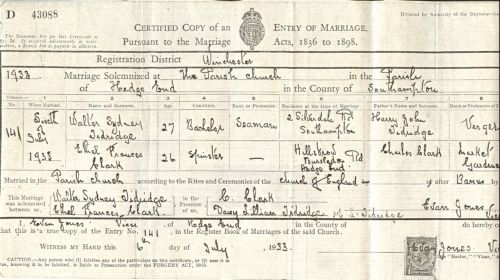 D 43088
CERTIFIED COPY of an ENTRY OF MARRIAGE.
Pursuant to the Marriage Acts, 1836 to 1898.
[Printed by Authority of the Registrar
The Statutory Fee for this Certificate is
Registration District Winchester
1933. Marriage Solemnized at The Parish church in the Parish
of Hedge End in the County of Southampton
No. When Married. Name and Surname. Age Condition Rank or Profession. Residence at the time of Marriage. Father's Name and Surname. Rank or Profession
141 Sixth of July 1933 Walter Sydney Tidridge 27 Bachelor Seaman 2 Silverdale Rd Southampton Harry John Tidridge Verger
Ethel Frances Clark 26 Spinster — Hillcrow Bursledon Rd Hedge End Charles Clark Market Gardener
Married in the Parish church according to the Rites and Ceremonies of the Church of England by or after Banns by
This Marriage was solemnized between us, Walter Sydney Tidridge Ethel Frances Clark in the Presence of us, C. Clark Daisy Lillian Tidridge Evan Jones Vicar
I, Evan Jones Vicar of Hedge End do hereby
that this is a true copy of the Entry No. 141 in the Register Book of Marriages of the said Church.
WITNESS MY HAND this 6th day of July, 1933. Evan Jones Vicar
CAUTION.—Any person who (1) falsifies any of the particulars on this certificate, or (2) uses it as true,
knowing it to be falsified, is liable to Prosecution under the FORGERY ACT, 1913.